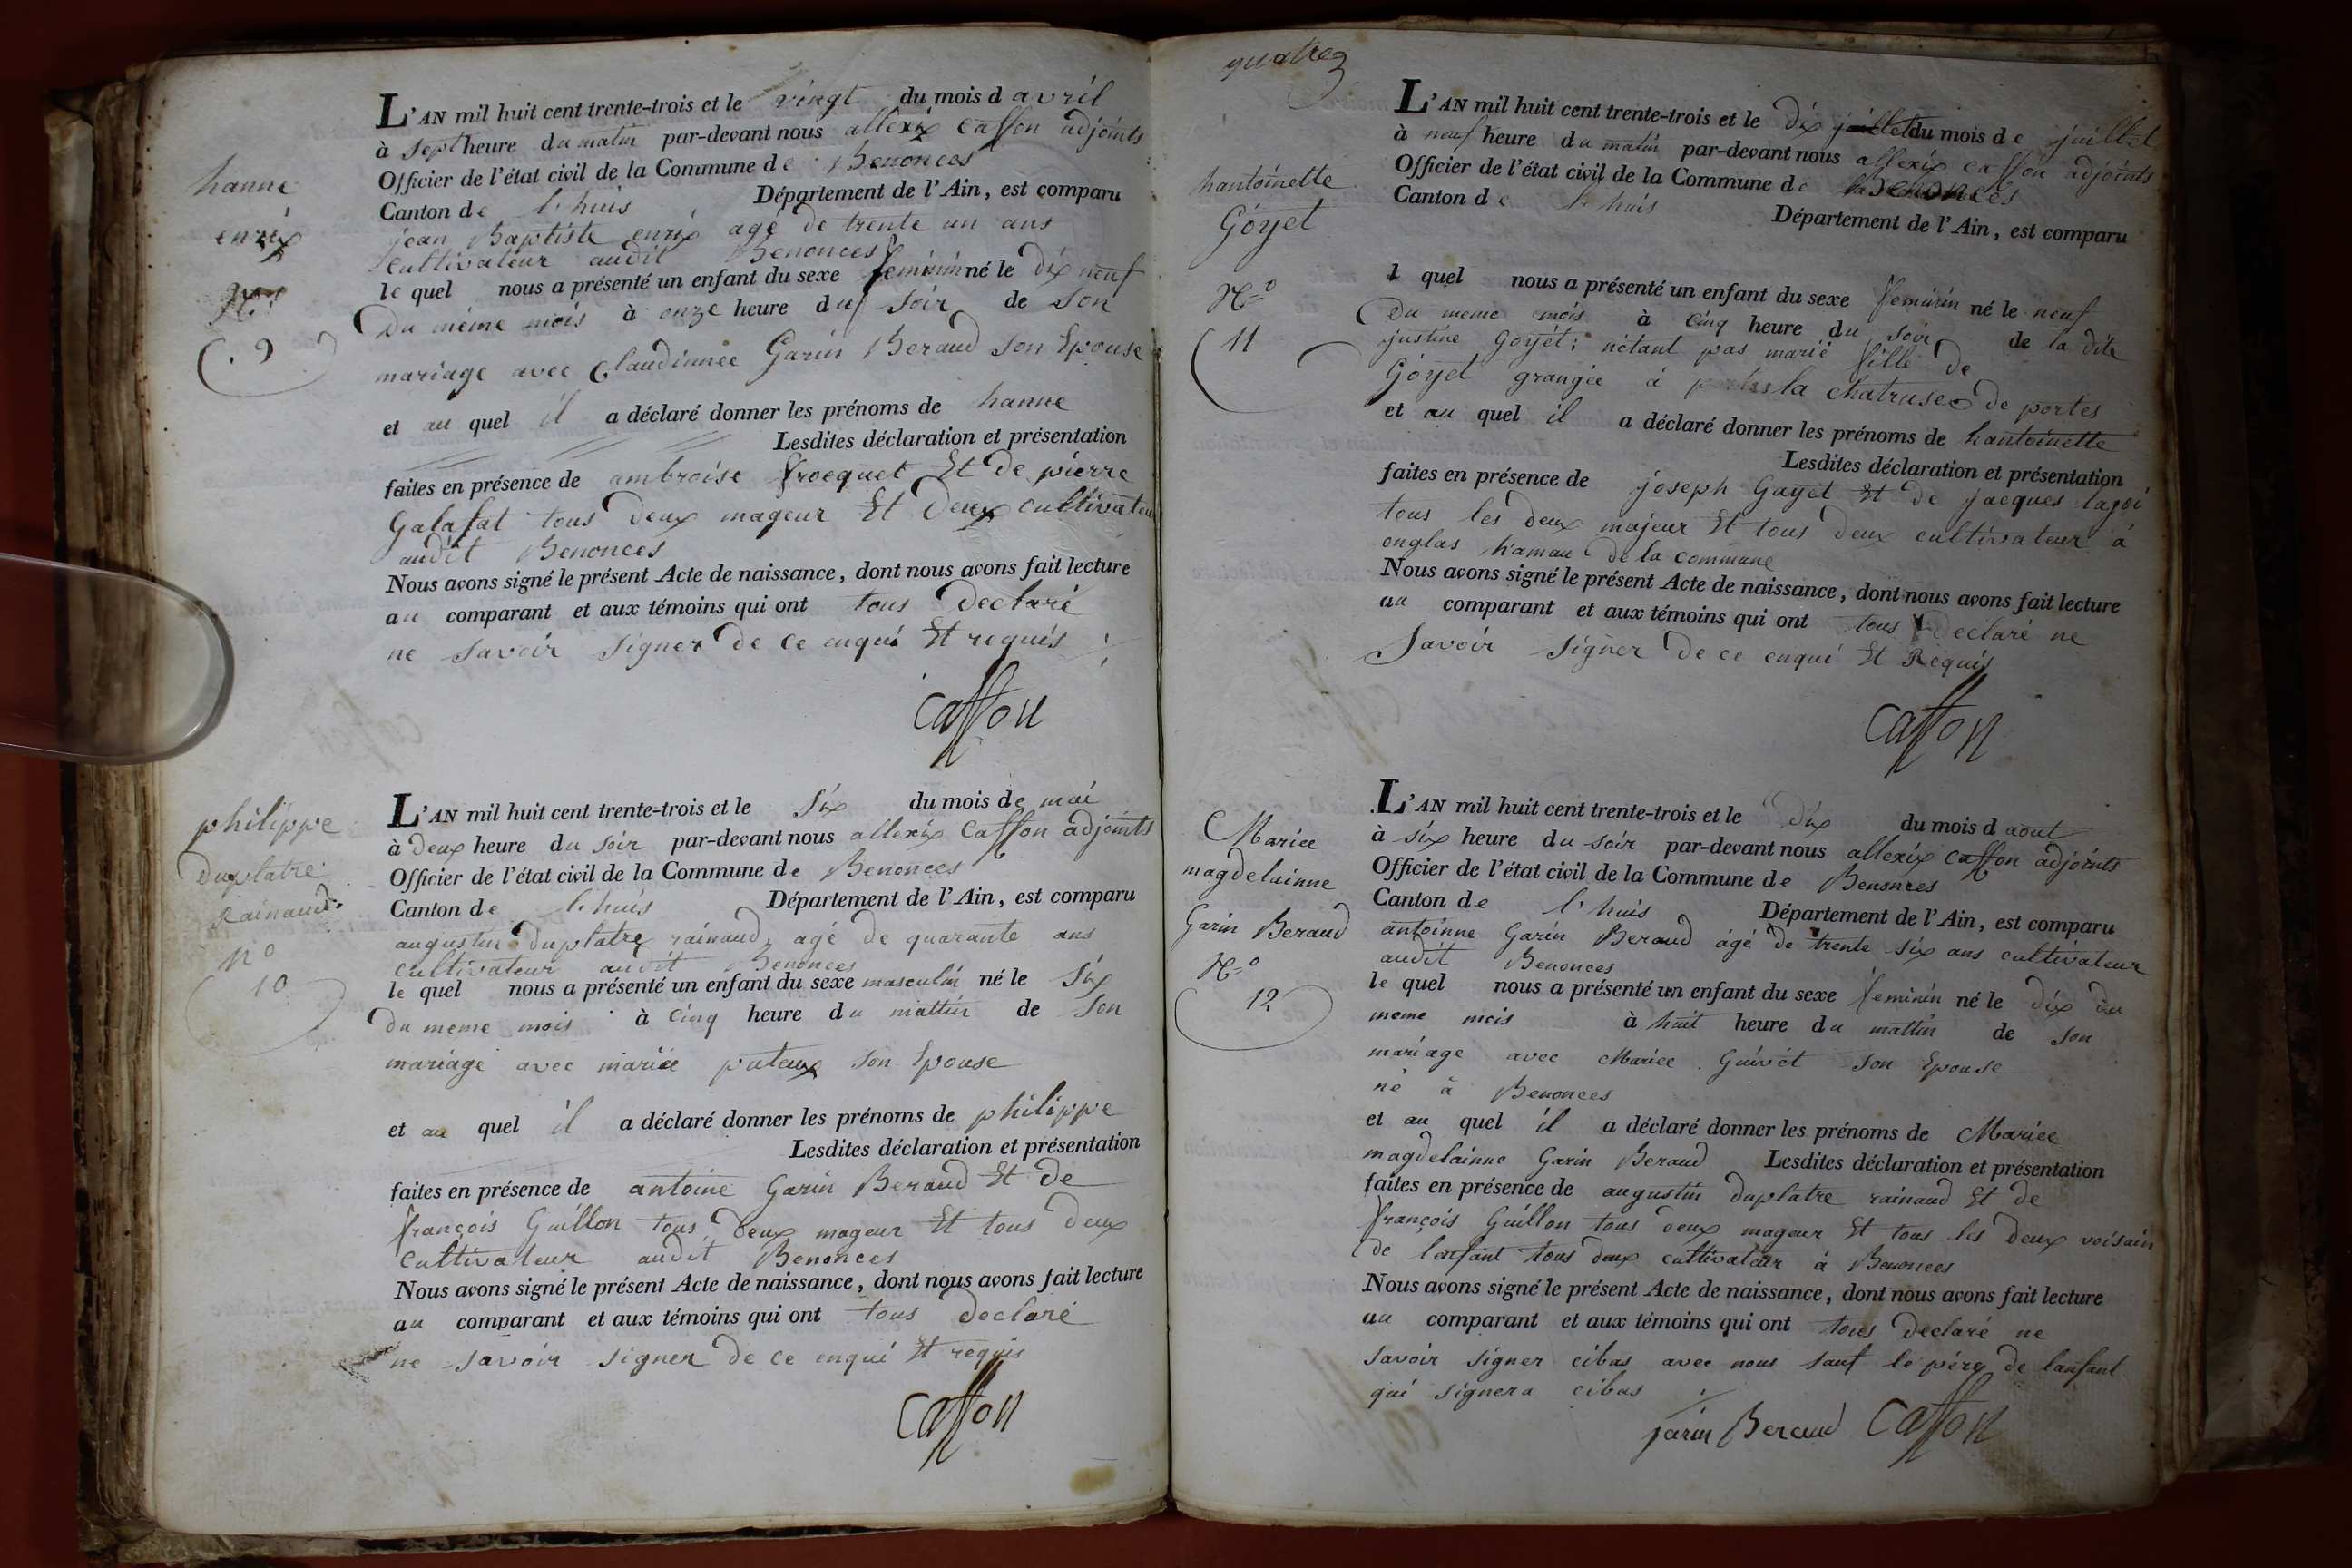 hanne
enrix
No
9
L'AN mil huit cent trente-trois et le vingt du mois d avril
à sept heure du matin par-devant nous allexix Caffon adjoints
Officier de l'état civil de la Commune de Benonces
Canton de l'huis Département de l'Ain, est comparu
jean Baptiste enrix agé de trente un ans
Cultivateur audit Benonces
le quel nous a présenté un enfant du sexe feminin né le dix neuf
Du même mois à onze heure du soir de son
mariage avec Claudinnee Garin Beraud son Epouse
et au quel il a déclaré donner les prénoms de hanne
Lesdites déclaration et présentation
faites en présence de ambroise frocquet Et de pierre
Galafat tous deux mageur Et deux cultivateur
audit Benonces
Nous avons signé le présent Acte de naissance, dont nous avons fait lecture
au comparant et aux témoins qui ont tous declaré
ne savoir signer de ce enqui Et requis
Caffon
philippe
Duplatre
Rainaud
no
10
L'AN mil huit cent trente-trois et le six du mois de mai
à deux heure du soir par-devant nous allexix Caffon adjoints
Officier de l'état civil de la Commune de Benonces
Canton de l'huis Département de l'Ain, est comparu
augustin Duplatre rainaud agé de quarante ans
cultivateur audit Benonces
le quel nous a présenté un enfant du sexe masculin né le six
du meme mois à cinq heure du mattin de son
mariage avec mariee puteux son Epouse
et au quel il a déclaré donner les prénoms de philippe
Lesdites déclaration et présentation
faites en présence de antoine Garin Beraud Et de
françois Guillon tous deux mageur Et tous deux
Cultivateur audit Benonces
Nous avons signé le présent Acte de naissance, dont nous avons fait lecture
au comparant et aux témoins qui ont tous declaré
ne savoir signer de ce enqui Et requis
Caffon
quatre
hantoinette
Goyet
No
11
L'AN mil huit cent trente-trois et le dix juillet du mois de juillet
à neuf heure du matin par-devant nous allexix caffon adjoints
Officier de l'état civil de la Commune de Benonces
Canton de l'huis Département de l'Ain, est comparu
l quel nous a présenté un enfant du sexe feminin né le neuf
Du meme mois à cinq heure du soir de la dite
justine goyet; n'étant pas marié fille de
Goyet grangée à la chatruse de portes
et au quel il a déclaré donner les prénoms de hantoinette
Lesdites déclaration et présentation
faites en présence de joseph Gayet Et de jacques
tous les deux majeur Et tous deux cultivateur à
onglas hamau de la commune
Nous avons signé le présent Acte de naissance, dont nous avons fait lecture
au comparant et aux témoins qui ont tous declaré ne
Savoir signer de ce enqui Et Requis
Caffon
Mariee
magdelainne
Garin Beraud
No
12
L'AN mil huit cent trente-trois et le dix du mois d aout
à six heure du soir par-devant nous allexix caffon adjoints
Officier de l'état civil de la Commune de Benonces
Canton de l'huis Département de l'Ain, est comparu
antoinne Garin Beraud agé de trente six ans cultivateur
audit Benonces
le quel nous a présenté un enfant du sexe feminin né le dix du
meme mois à huit heure du mattin de son
mariage avec Mariee Guivét son Epouse
né à Benonces
et au quel il a déclaré donner les prénoms de Mariee
magdelainne Garin Beraud Lesdites déclaration et présentation
faites en présence de augustin duplatre rainaud Et de
françois Guillon tous deux mageur Et tous les deux voisain
de lenfant tous deux cultivateur à Benonces
Nous avons signé le présent Acte de naissance, dont nous avons fait lecture
au comparant et aux témoins qui ont tous declaré ne
savoir signer cibas avec nous sauf le pére de lanfant
qui signera cibas
jarin Beraud Caffon